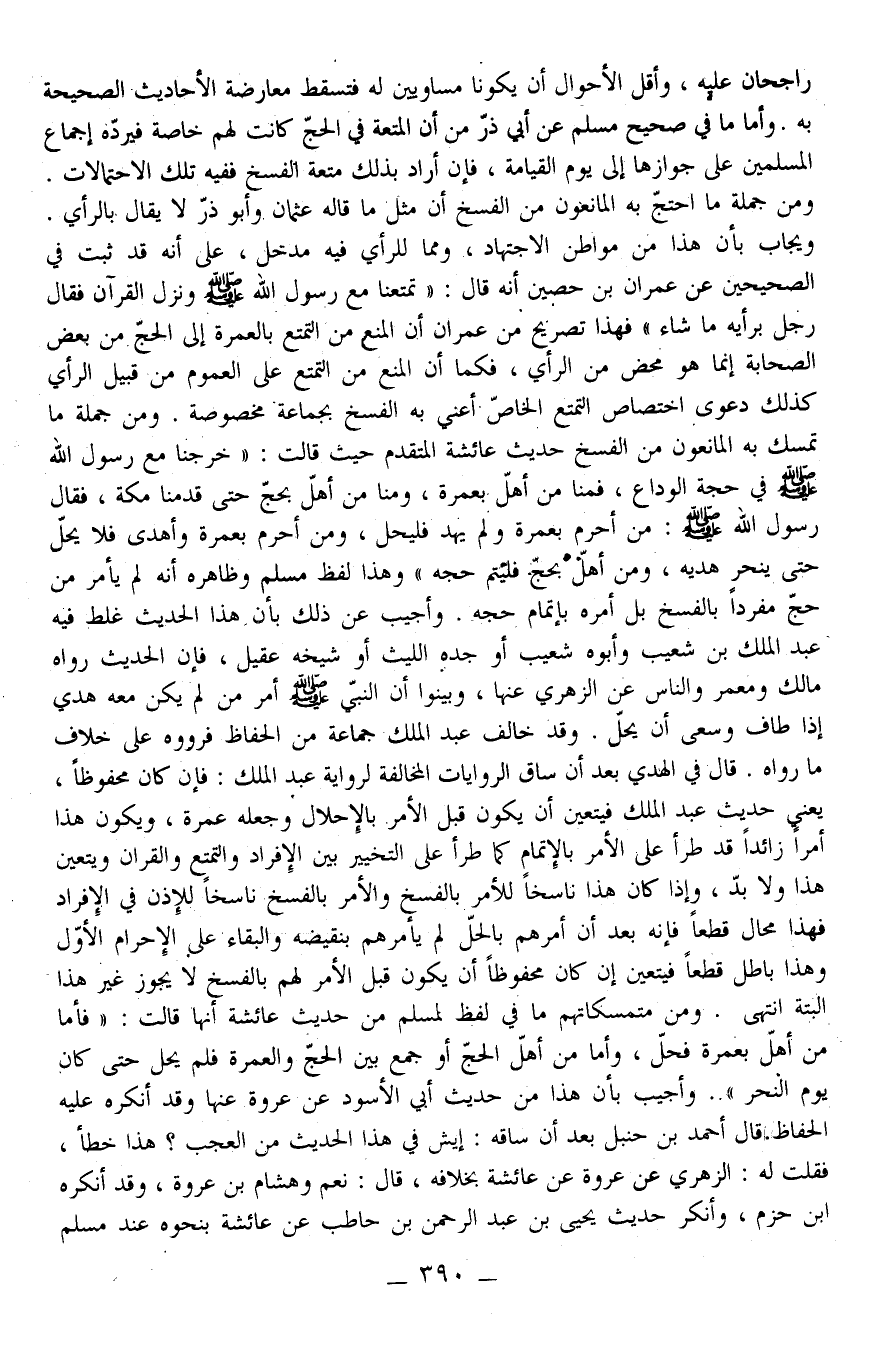 راجحان عليه ، وأقل الأحوال أن يكونا مساويين له فتسقط معارضة الأحاديث الصحيحة
به . وأما ما في صحيح مسلم عن أبي ذرّ من أن المتعة في الحجّ كانت لهم خاصة فيردّه إجماع
المسلمين على جوازها إلى يوم القيامة ، فإن أراد بذلك متعة الفسخ ففيه تلك الاحتمالات .
ومن جملة ما احتجّ به المانعون من الفسخ أن مثل ما قاله عثمان وأبو ذرّ لا يقال بالرأي .
ويجاب بأن هذا من مواطن الاجتهاد ، ومما للرأي فيه مدخل ، على أنه قد ثبت في
الصحيحين عن عمران بن حصين أنه قال : « تمتعنا مع رسول الله ﷺ ونزل القرآن فقال
رجل برأيه ما شاء » فهذا تصريح من عمران أن المنع من التمتع بالعمرة إلى الحجّ من بعض
الصحابة إنما هو محض من الرأي ، فكما أن المنع من التمتع على العموم من قبيل الرأي
كذلك دعوى اختصاص التمتع الخاصّ أعني به الفسخ بجماعة مخصوصة . ومن جملة ما
تمسك به المانعون من الفسخ حديث عائشة المتقدم حيث قالت : « خرجنا مع رسول الله
ﷺ في حجة الوداع ، فمنا من أهلّ بعمرة ، ومنا من أهلّ بحجّ حتى قدمنا مكة ، فقال
رسول الله ﷺ : من أحرم بعمرة ولم يهد فليحل ، ومن أحرم بعمرة وأهدى فلا يحلّ
حتى ينحر هديه ، ومن أهلّ بحجّ فليتم حجه » وهذا لفظ مسلم وظاهره أنه لم يأمر من
حجّ مفرداً بالفسخ بل أمره بإتمام حجه . وأجيب عن ذلك بأن هذا الحديث غلط فيه
عبد الملك بن شعيب وأبوه شعيب أو جده الليث أو شيخه عقيل ، فإن الحديث رواه
مالك ومعمر والناس عن الزهري عنها ، وبينوا أن النبيّ ﷺ أمر من لم يكن معه هدي
إذا طاف وسعى أن يحلّ . وقد خالف عبد الملك جماعة من الحفاظ فرووه على خلاف
ما رواه . قال في الهدي بعد أن ساق الروايات المخالفة لرواية عبد الملك : فإن كان محفوظاً ،
يعني حديث عبد الملك فيتعين أن يكون قبل الأمر بالإحلال وجعله عمرة ، ويكون هذا
أمراً زائداً قد طرأ على الأمر بالإتمام كما طرأ على التخيير بين الإفراد والتمتع والقران ويتعين
هذا ولا بدّ ، وإذا كان هذا ناسخاً للأمر بالفسخ والأمر بالفسخ ناسخاً للإذن في الإفراد
فهذا محال قطعاً فإنه بعد أن أمرهم بالحلّ لم يأمرهم بنقيضه والبقاء على الإحرام الأوّل
وهذا باطل قطعاً فيتعين إن كان محفوظاً أن يكون قبل الأمر لهم بالفسخ لا يجوز غير هذا
البتة انتهى . ومن متمسكاتهم ما في لفظ لمسلم من حديث عائشة أنها قالت : « فأما
من أهلّ بعمرة فحلّ ، وأما من أهلّ الحجّ أو جمع بين الحجّ والعمرة فلم يحل حتى كان
يوم النحر » .. وأجيب بأن هذا من حديث أبي الأسود عن عروة عنها وقد أنكره عليه
الحفاظ. قال أحمد بن حنبل بعد أن ساقه : إيش في هذا الحديث من العجب ؟ هذا خطأ ،
فقلت له : الزهري عن عروة عن عائشة بخلافه ، قال : نعم وهشام بن عروة ، وقد أنكره
ابن حزم ، وأنكر حديث يحيى بن عبد الرحمن بن حاطب عن عائشة بنحوه عند مسلم
ــ ٣٩٠ ــ